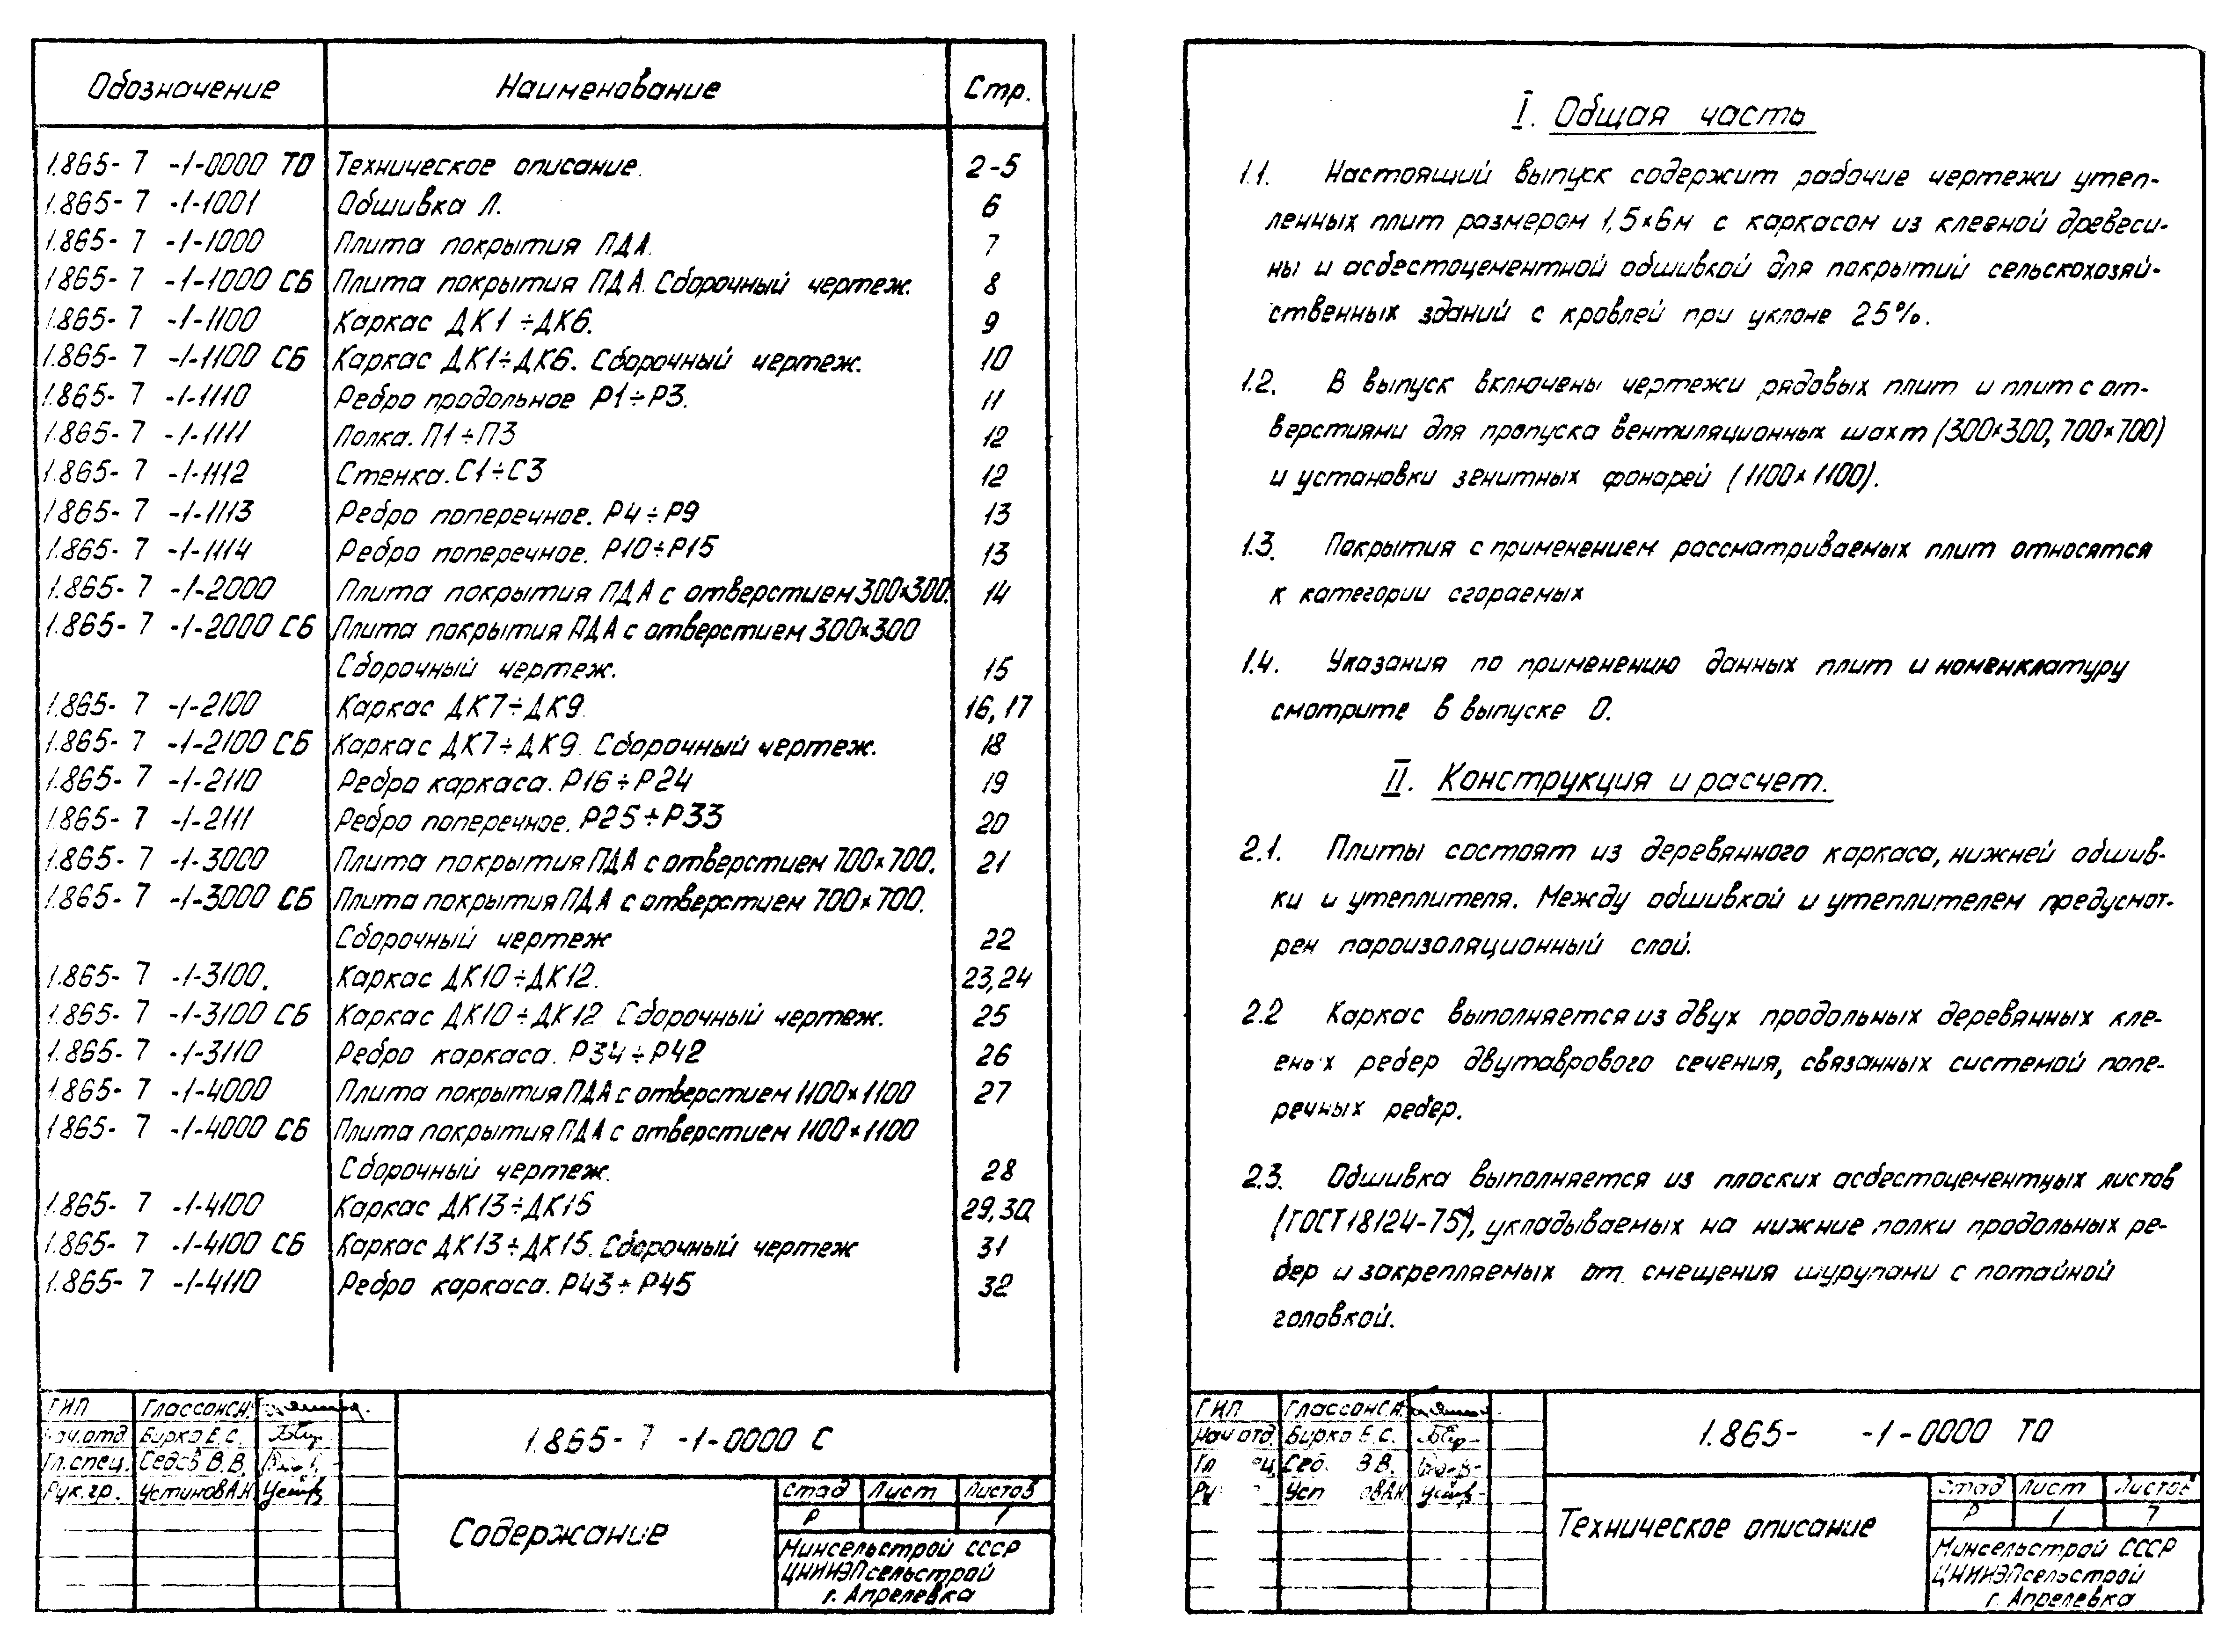 Обозначение Наименование Стр.
1.865- 7 -1-0000 ТО Техническое описание. 2-5
1.865- 7 -1-1001 Обшивка Л. 6
1.865- 7 -1-1000 Плита покрытия ПДА. 7
1.865- 7 -1-1000 СБ Плита покрытия ПДА. Сборочный чертеж. 8
1.865- 7 -1-1100 Каркас ДК1÷ДК6. 9
1.865- 7 -1-1100 СБ Каркас ДК1÷ДК6. Сборочный чертеж. 10
1.865- 7 -1-1110 Ребро продольное Р1÷Р3. 11
1.865- 7 -1-1111 Полка. П1÷П3 12
1.865- 7 -1-1112 Стенка. С1÷С3 12
1.865- 7 -1-1113 Ребро поперечное. Р4÷Р9 13
1.865- 7 -1-1114 Ребро поперечное. Р10÷Р15 13
1.865- 7 -1-2000 Плита покрытия ПДА с отверстием 300×300. 14
1.865- 7 -1-2000 СБ Плита покрытия ПДА с отверстием 300×300
Сборочный чертеж. 15
1.865- 7 -1-2100 Каркас ДК7÷ДК9. 16, 17
1.865- 7 -1-2100 СБ Каркас ДК7÷ДК9. Сборочный чертеж. 18
1.865- 7 -1-2110 Ребро каркаса. Р16÷Р24 19
1.865- 7 -1-2111 Ребро поперечное. Р25÷Р33 20
1.865- 7 -1-3000 Плита покрытия ПДА с отверстием 700×700. 21
1.865- 7 -1-3000 СБ Плита покрытия ПДА с отверстием 700×700.
Сборочный чертеж 22
1.865- 7 -1-3100. Каркас ДК10÷ДК12. 23,24
1.865- 7 -1-3100 СБ Каркас ДК10÷ДК12 Сборочный чертеж. 25
1.865- 7 -1-3110 Ребро каркаса. Р34÷Р42 26
1.865- 7 -1-4000 Плита покрытия ПДА с отверстием 1100×1100 27
1.865- 7 -1-4000 СБ Плита покрытия ПДА с отверстием 1100×1100
Сборочный чертеж. 28
1.865- 7 -1-4100 Каркас ДК13÷ДК15 29,30
1.865- 7 -1-4100 СБ Каркас ДК13÷ДК15. Сборочный чертеж 31
1.865- 7 -1-4110 Ребро каркаса. Р43÷Р45 32
ГИП Глассон С.Н.
Нач.отд. Бирко Е.С.
Гл.спец. Седов В.В.
Рук.гр. Устинов А.Н.
1.865- 7 -1-0000 С
Содержание
Стад Лист Листов
Р 1
Минсельстрой СССР
ЦНИИЭПсельстрой
г. Апрелевка
I. Общая часть
1.1. Настоящий выпуск содержит рабочие чертежи утеп-
ленных плит размером 1,5×6м с каркасом из клееной древеси-
ны и асбестоцементной обшивкой для покрытий сельскохозяй-
ственных зданий с кровлей при уклоне 25%.
1.2. В выпуск включены чертежи рядовых плит и плит с от-
верстиями для пропуска вентиляционных шахт (300×300, 700×700)
и установки зенитных фонарей (1100×1100).
1.3. Покрытия с применением рассматриваемых плит относятся
к категории сгораемых
1.4. Указания по применению данных плит и номенклатуру
смотрите в выпуске 0.
II. Конструкция и расчет.
2.1. Плиты состоят из деревянного каркаса, нижней обшив-
ки и утеплителя. Между обшивкой и утеплителем предусмот-
рен пароизоляционный слой.
2.2 Каркас выполняется из двух продольных деревянных кле-
еных ребер двутаврового сечения, связанных системой попе-
речных ребер.
2.3. Обшивка выполняется из плоских асбестоцементных листов
(ГОСТ 18124-75*), укладываемых на нижние полки продольных ре-
бер и закрепляемых от смещения шурупами с потайной
головкой.
ГИП Глассон С.Н.
Нач отд Бирко Е.С.
1.865- -1-0000 ТО
Техническое описание
Стад Лист Листов
Р 1 7
Минсельстрой СССР
ЦНИИЭПсельстрой
г. Апрелевка